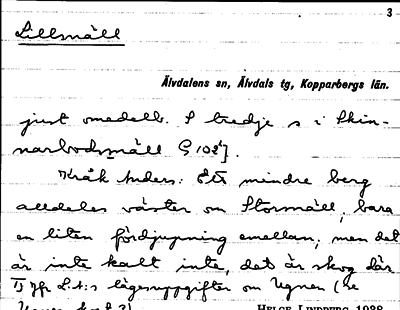 3
Lillsmäll
Älvdalens sn, Älvdals tg, Kopparbergs län.
just omedelb. S tredje s i Skin-
narbodsmäll G 102].
Kråk Anders: Ett mindre berg
alldeles väster om Storsmäll, bara
en liten fördjupning emellan; men det
är inte kalt inte, det är skog där
Jfr L.L:s lägesuppgifter om Ugnen (se
HELGE LINDBERG 1988